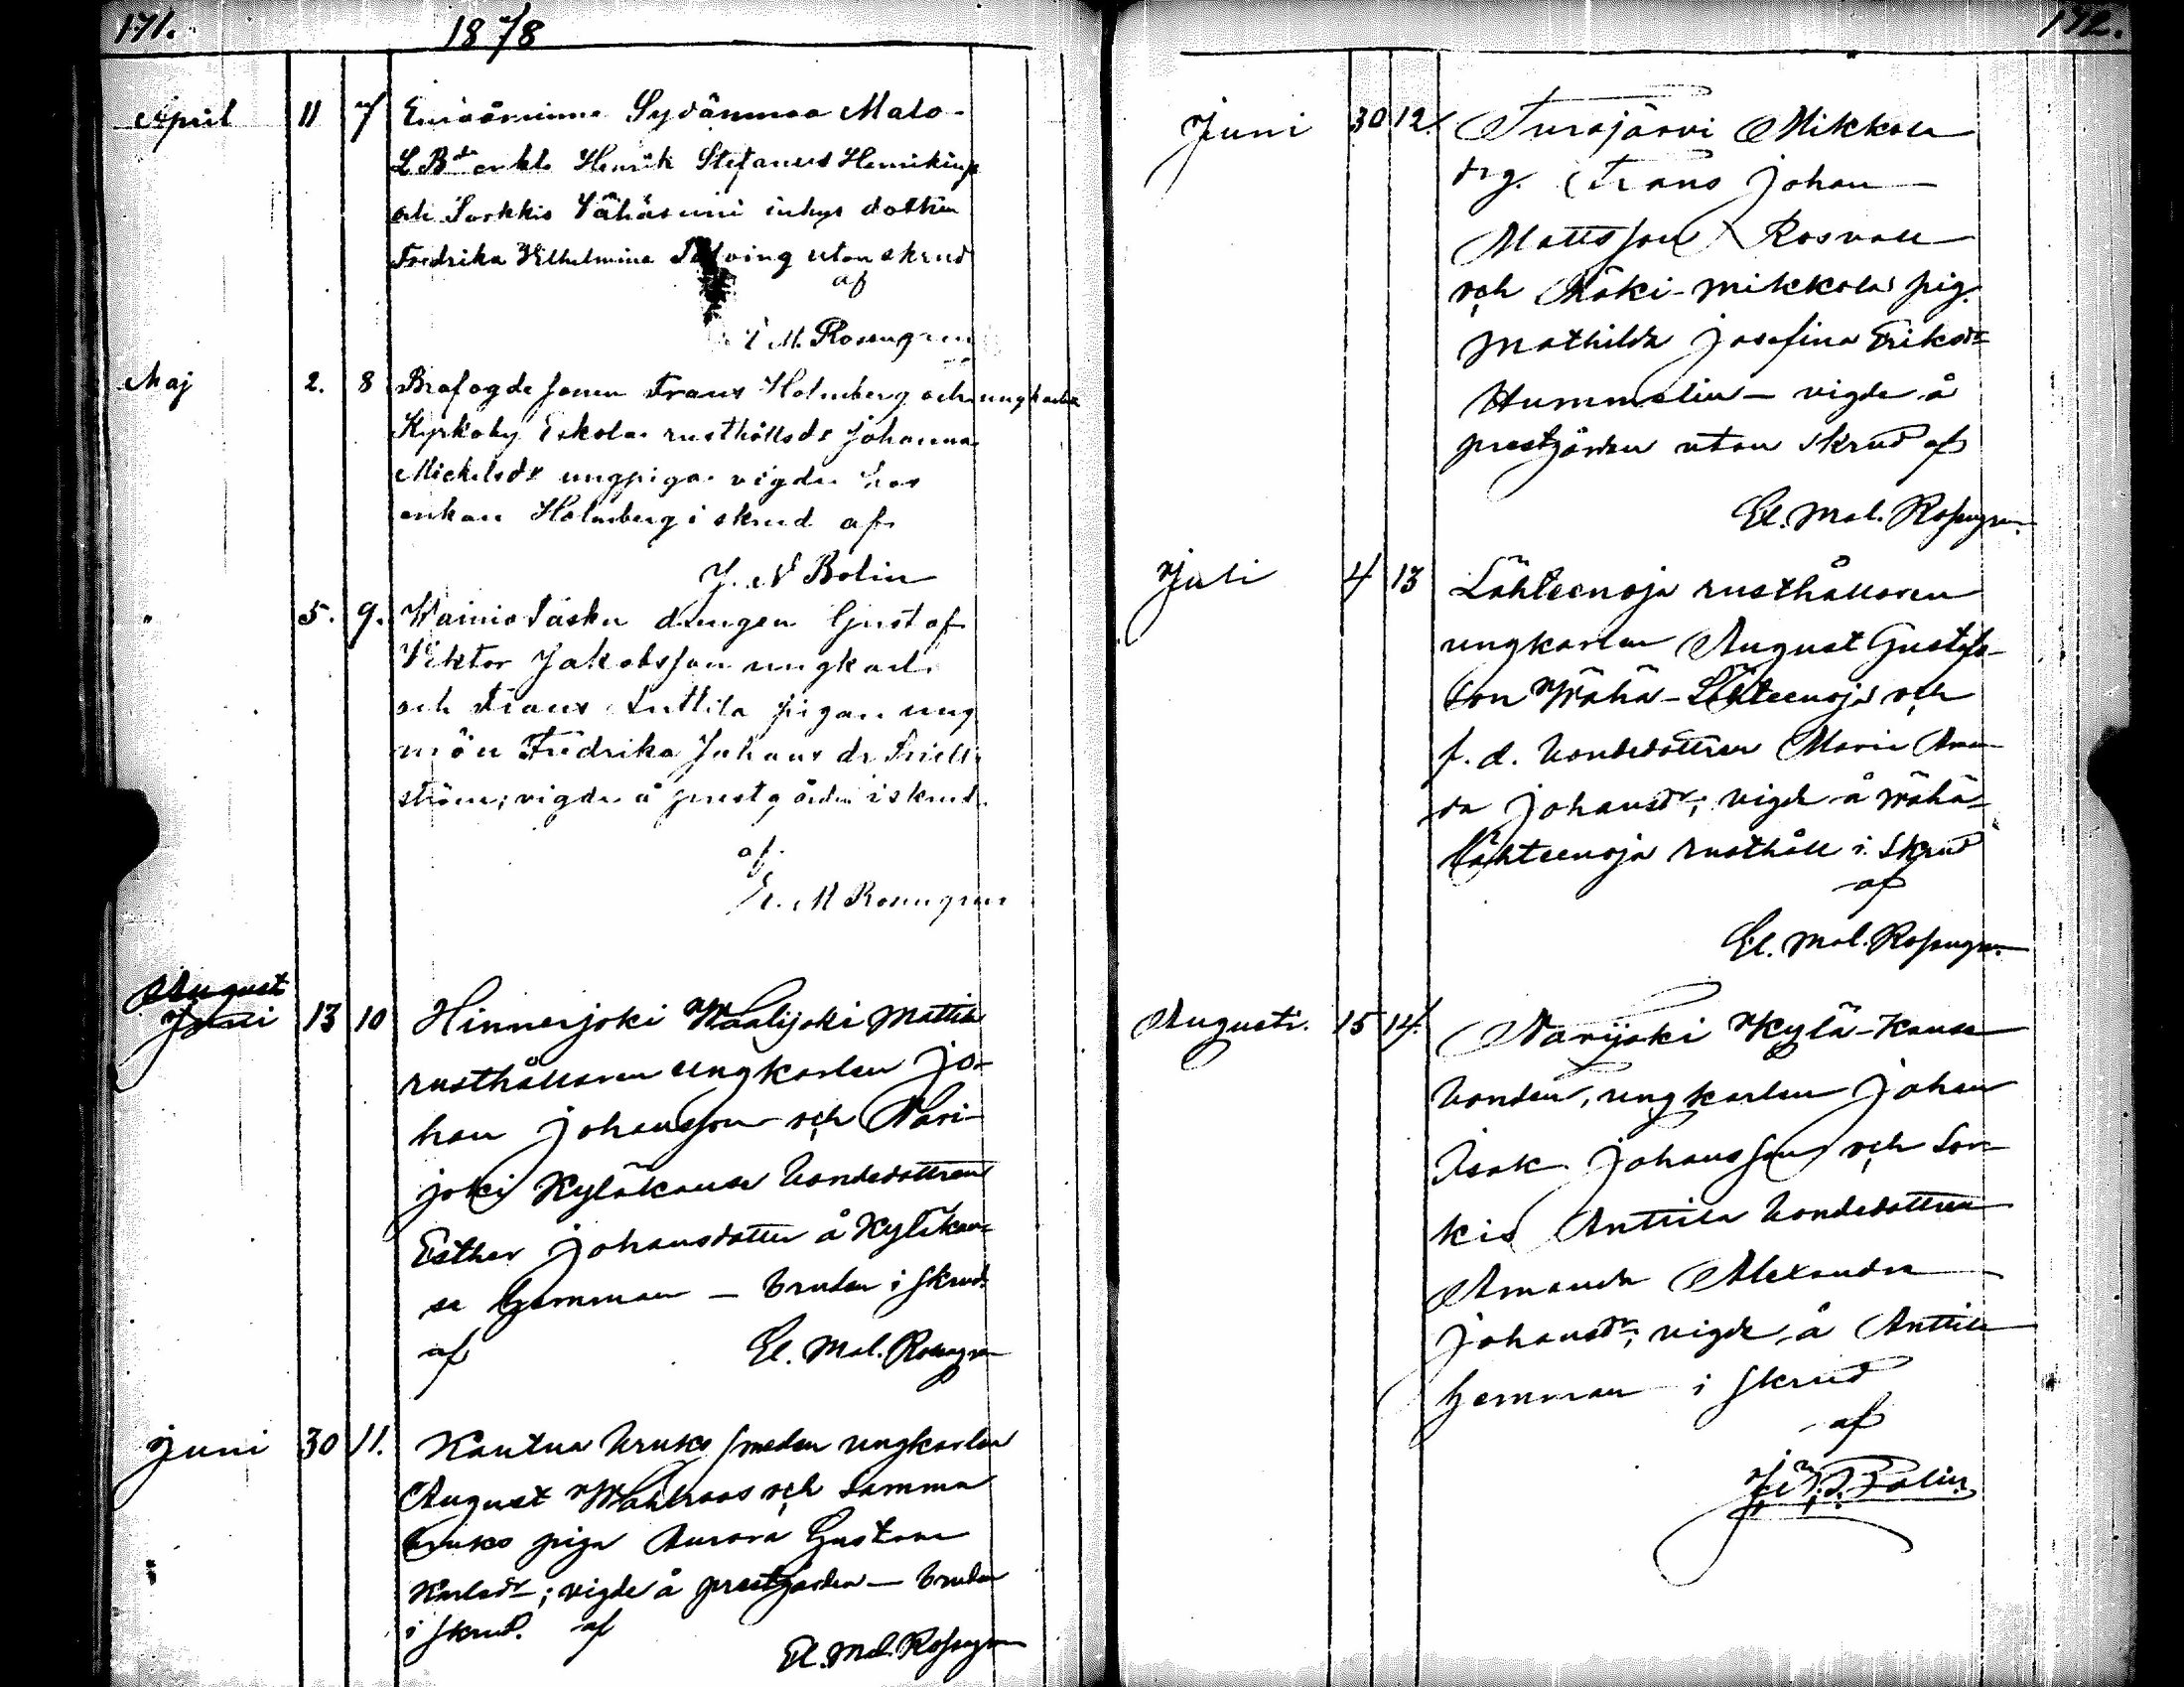 171.
1878
April 11 7 Euraåminne Sydänmaa Malo-
L Bde enkl. Henrik Stefanus Henriksson
och Sorkkis Vähäsuni inhys dottren
Fredrika Vilhelmina utan skrud
af
E M. Rosengren
Maj 2. 8 Brofogde sonen Frans Holmberg och ungkarlen
Kyrkoby Eskola rusthållsdr Johanna
Mickelsdr ungpigan vigda hos
enkan Holmberg i skrud af
J. N Bolin
" 5. 9. Wainio Pasku drengen Gustaf
Viktor Jakobsson ungkarl
och Anttila pigan ung
mön Fredrika Johans dr
ström; vigda å prestgården i skrud
af
E. M Rosengren
August
Juni 13 10 Hinnerjoki Waalijoki Mattila
rusthållaren ungkarlen Jo-
han Johansson och Nari-
joki Kyläkausa bondedottren
Esther Johansdotter å Kyläkau-
sa hemman — bruden i skrud
af El. Mal. Rosengren
Juni 30 11. Kautua bruks smeden ungkarlen
August Wahlroos och samma
bruks piga Aurora Gustava
Karlsdr; vigde å prestgården — bruden
i skrud. af
El. Mal. Rosengren
172.
Juni 30 12. Turajärvi Mikkola
drg. Frans Johan
Mattsson Rosvall
och Mäki-Mikkola pig.
Mathilda Josefina Eriksdr
Hummelin — vigde å
prestgården utan skrud af
El. Mal. Rosengren.
Juli 4 13 Lähteenoja rusthållaren
ungkarlen August Gustafs-
son Wähä-Lähteenoja och
f. d. bondedottren Maria Aman-
da Johansdr; vigde å Wähä-
Lähteenoja rusthåll i skrud
af
El. Mal. Rosengren.
Augusti. 15 14. Narijoki Kylä-Kausa
bonden, ungkarlen Johan
Isak Johansson och Sor-
kis Anttila bondedottren
Amanda Alexandra
Johansdr; vigde å Anttila
hemman i skrud
af
J. N. Bolin